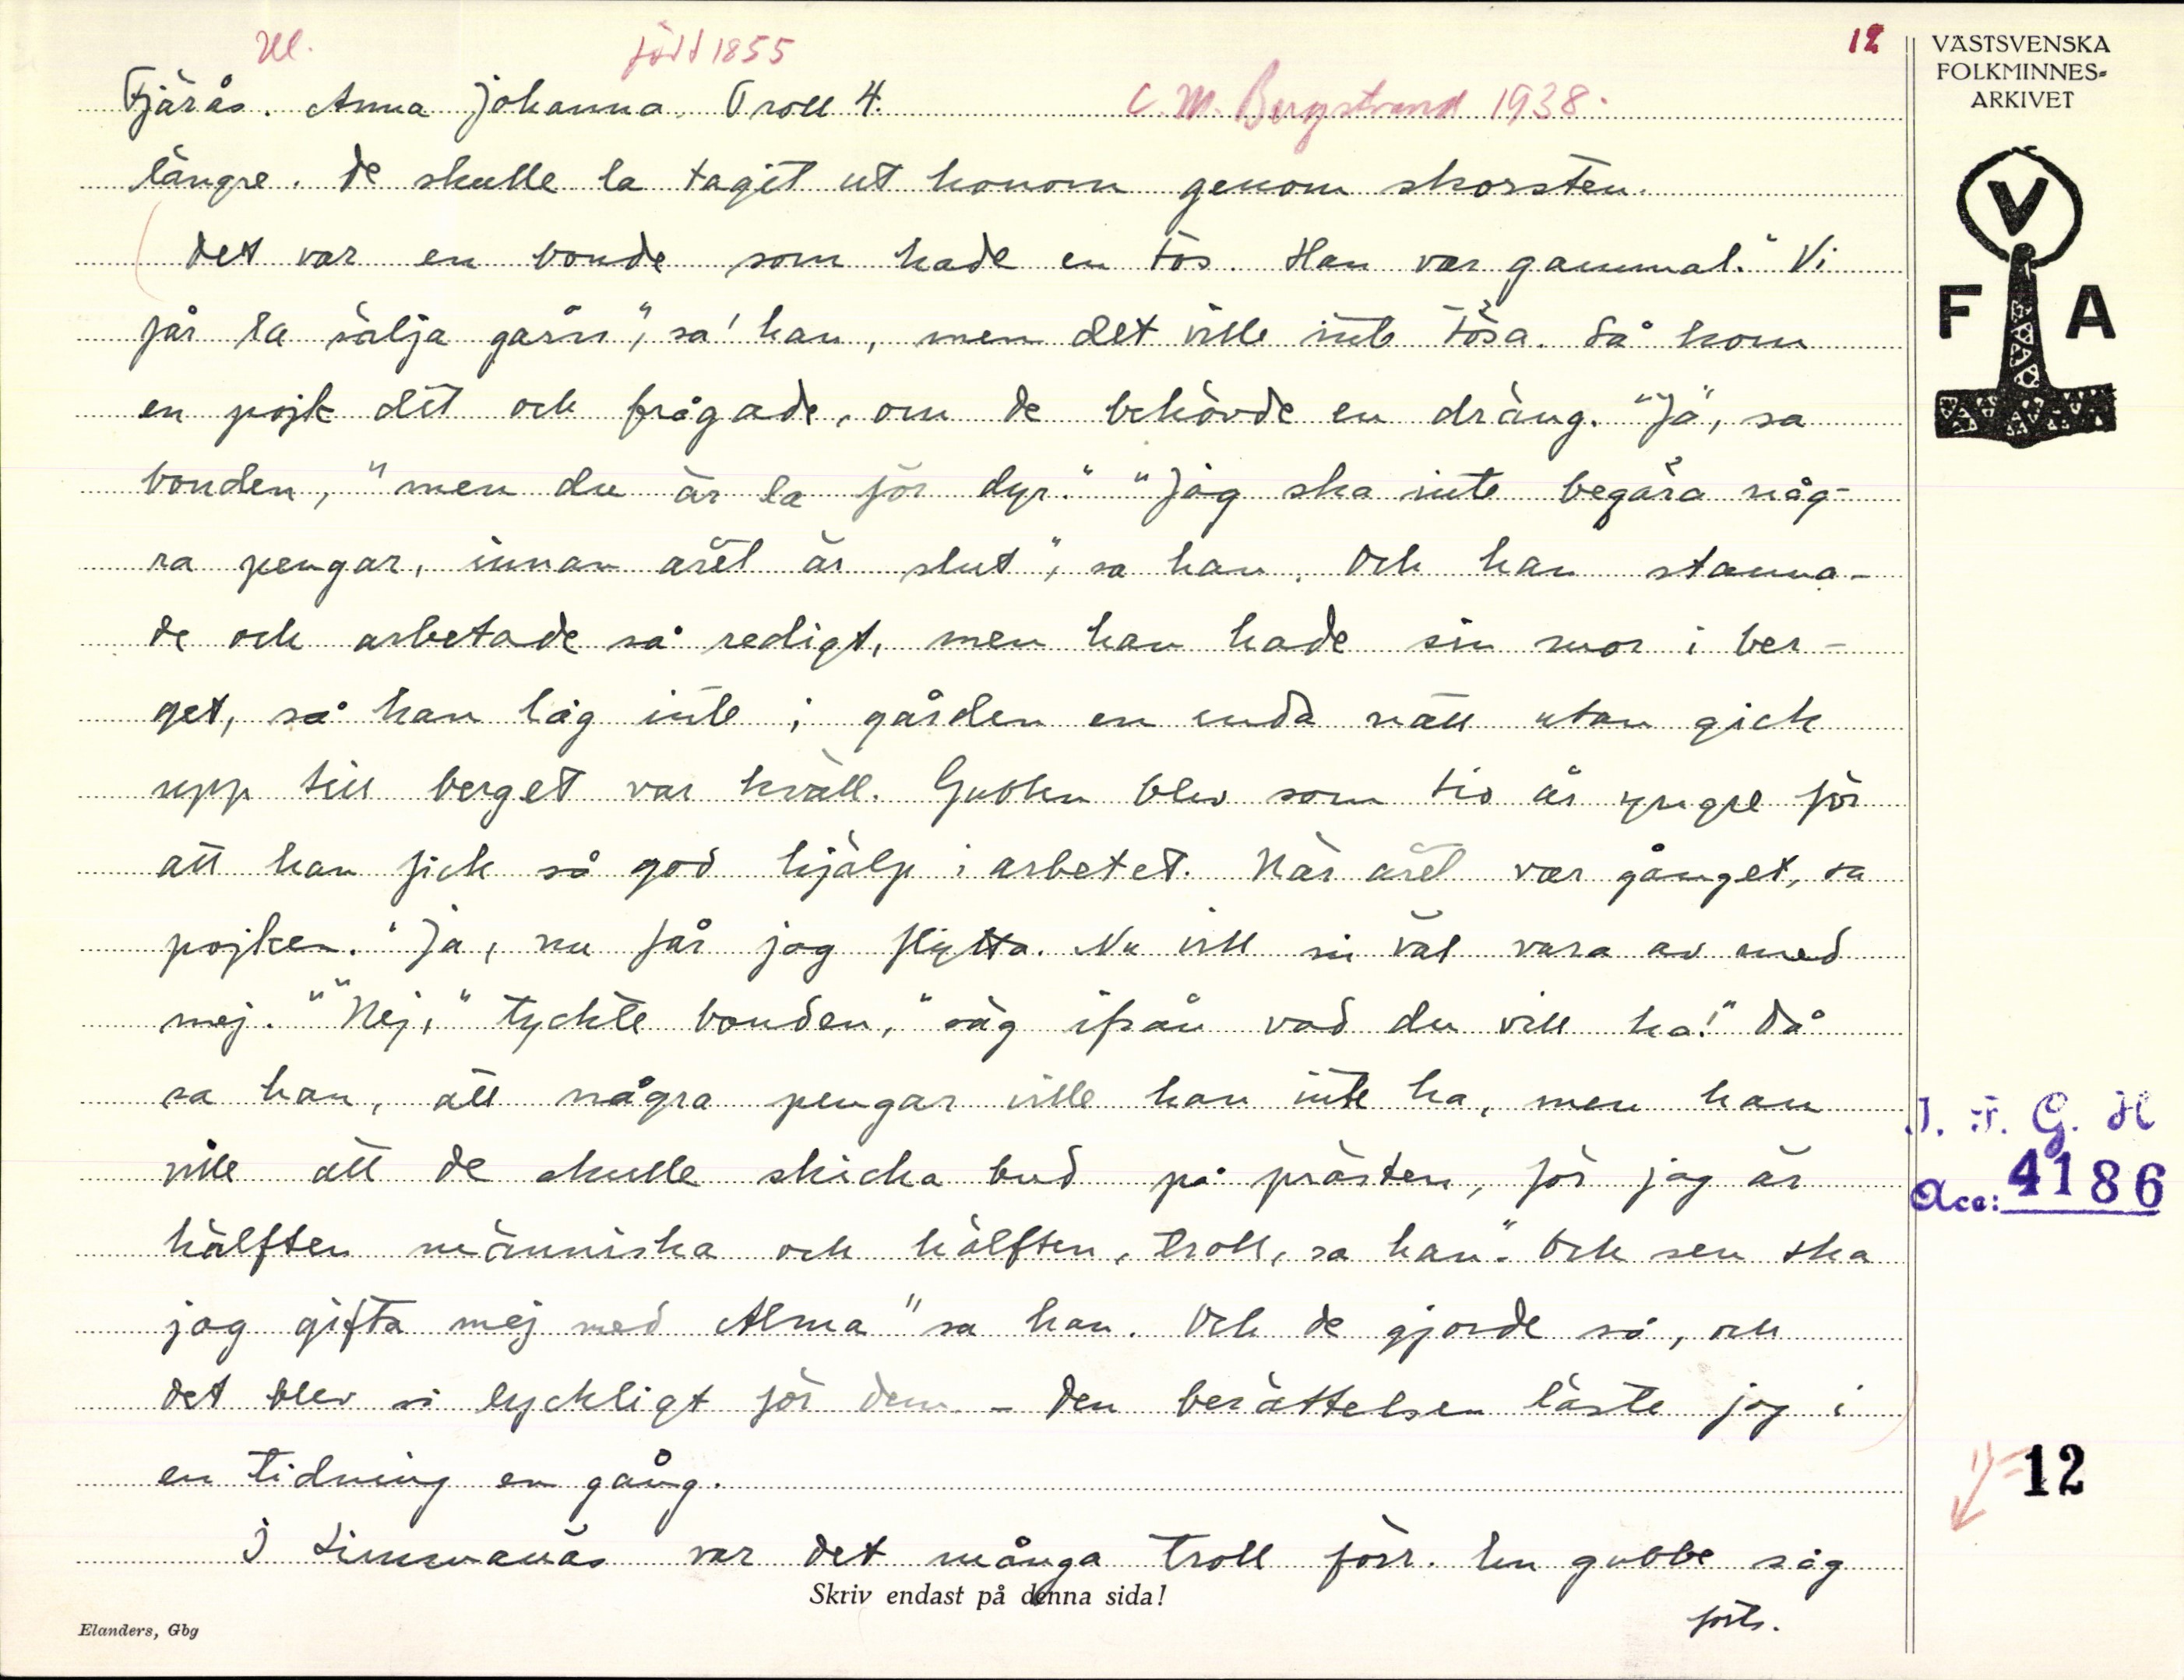 född 1855
12
Fjärås. Anna Johanna, Troll 4.
C. M. Bergstrand 1938.
längre. De skulle la tagit ut honom genom skorsten.
Det var en bonde som hade en tös. Han var gammal. "Vi
får la sälja gårn", sa' han, men det ville inte tösa. Så kom
en pojk dit och frågade, om de behövde en dräng. "Ja", sa
bonden, "men du är la för dyr." "Jag ska inte begära någ-
ra pengar, innan året är slut", sa han. Och han stanna-
de och arbetade så redigt, men han hade sin mor i ber-
get, så han låg inte i gården en enda natt utan gick
upp till berget var kväll. Gubben blev som tio år yngre för
att han fick så god hjälp i arbetet. När året var gånget, sa
pojken. "Ja, nu får jag flytta. Nu vill ni väl vara av med
mej." "Nej," tyckte bonden, "säg ifrån vad du vill ha!" Då
sa han, att några pengar ville han inte ha, men han
ville att de skulle skicka bud på prästen, för jag är
hälften människa och hälften, troll, sa han". Och sen ska
jag gifta mej med Alma" sa han. Och de gjorde så, och
det blev så lyckligt för dem. - Den berättelsen läste jag i
en tidning en gång.
I Limmanäs var det många troll förr. En gubbe såg
forts.
Skriv endast på denna sida!
Elanders, Gbg
VÄSTSVENSKA
FOLKMINNES-
ARKIVET
V
F A
I. F. G. H
Acc: 4186
12